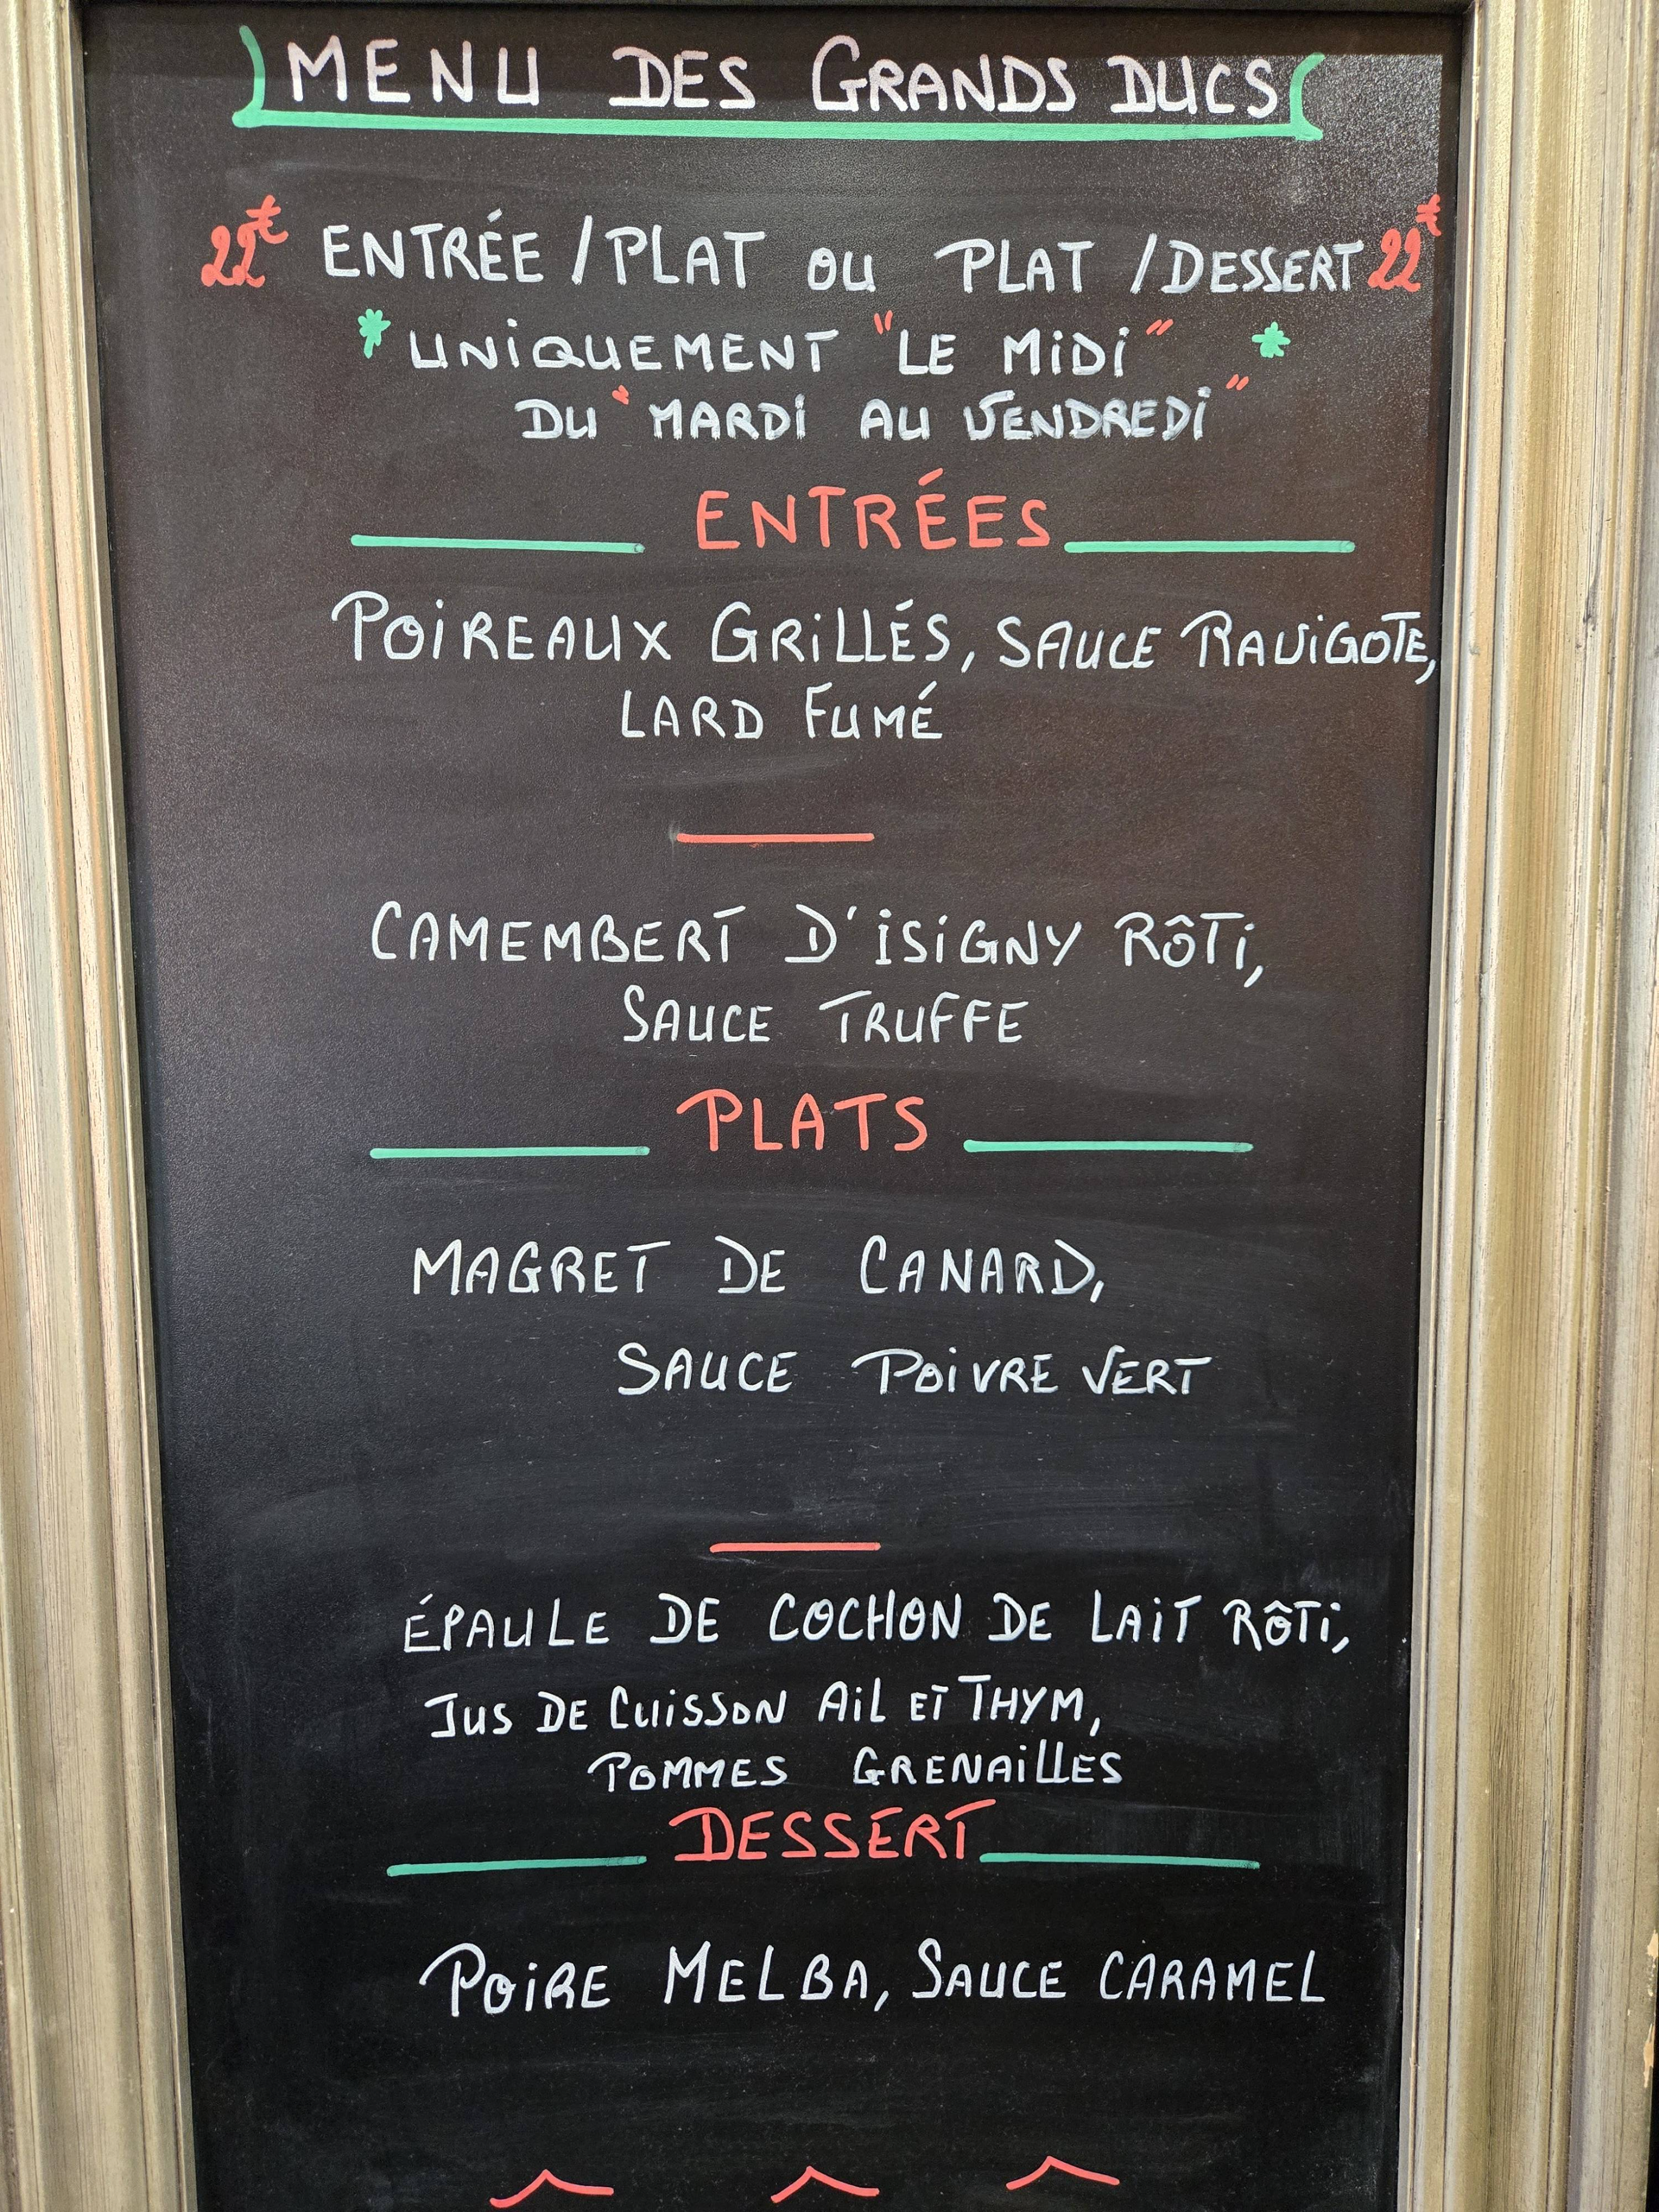 MENU DES GRANDS DUCS
22€ ENTRÉE / PLAT OU PLAT / DESSERT 22€
* UNIQUEMENT "LE MIDI" *
DU "MARDI AU VENDREDI"
ENTRÉES
POIREAUX GRILLÉS, SAUCE RAVIGOTE,
LARD FUMÉ
CAMEMBERT D'ISIGNY RÔTI,
SAUCE TRUFFE
PLATS
MAGRET DE CANARD,
SAUCE POIVRE VERT
ÉPAULE DE COCHON DE LAIT RÔTI,
JUS DE CUISSON AIL ET THYM,
POMMES GRENAILLES
DESSERT
POIRE MELBA, SAUCE CARAMEL